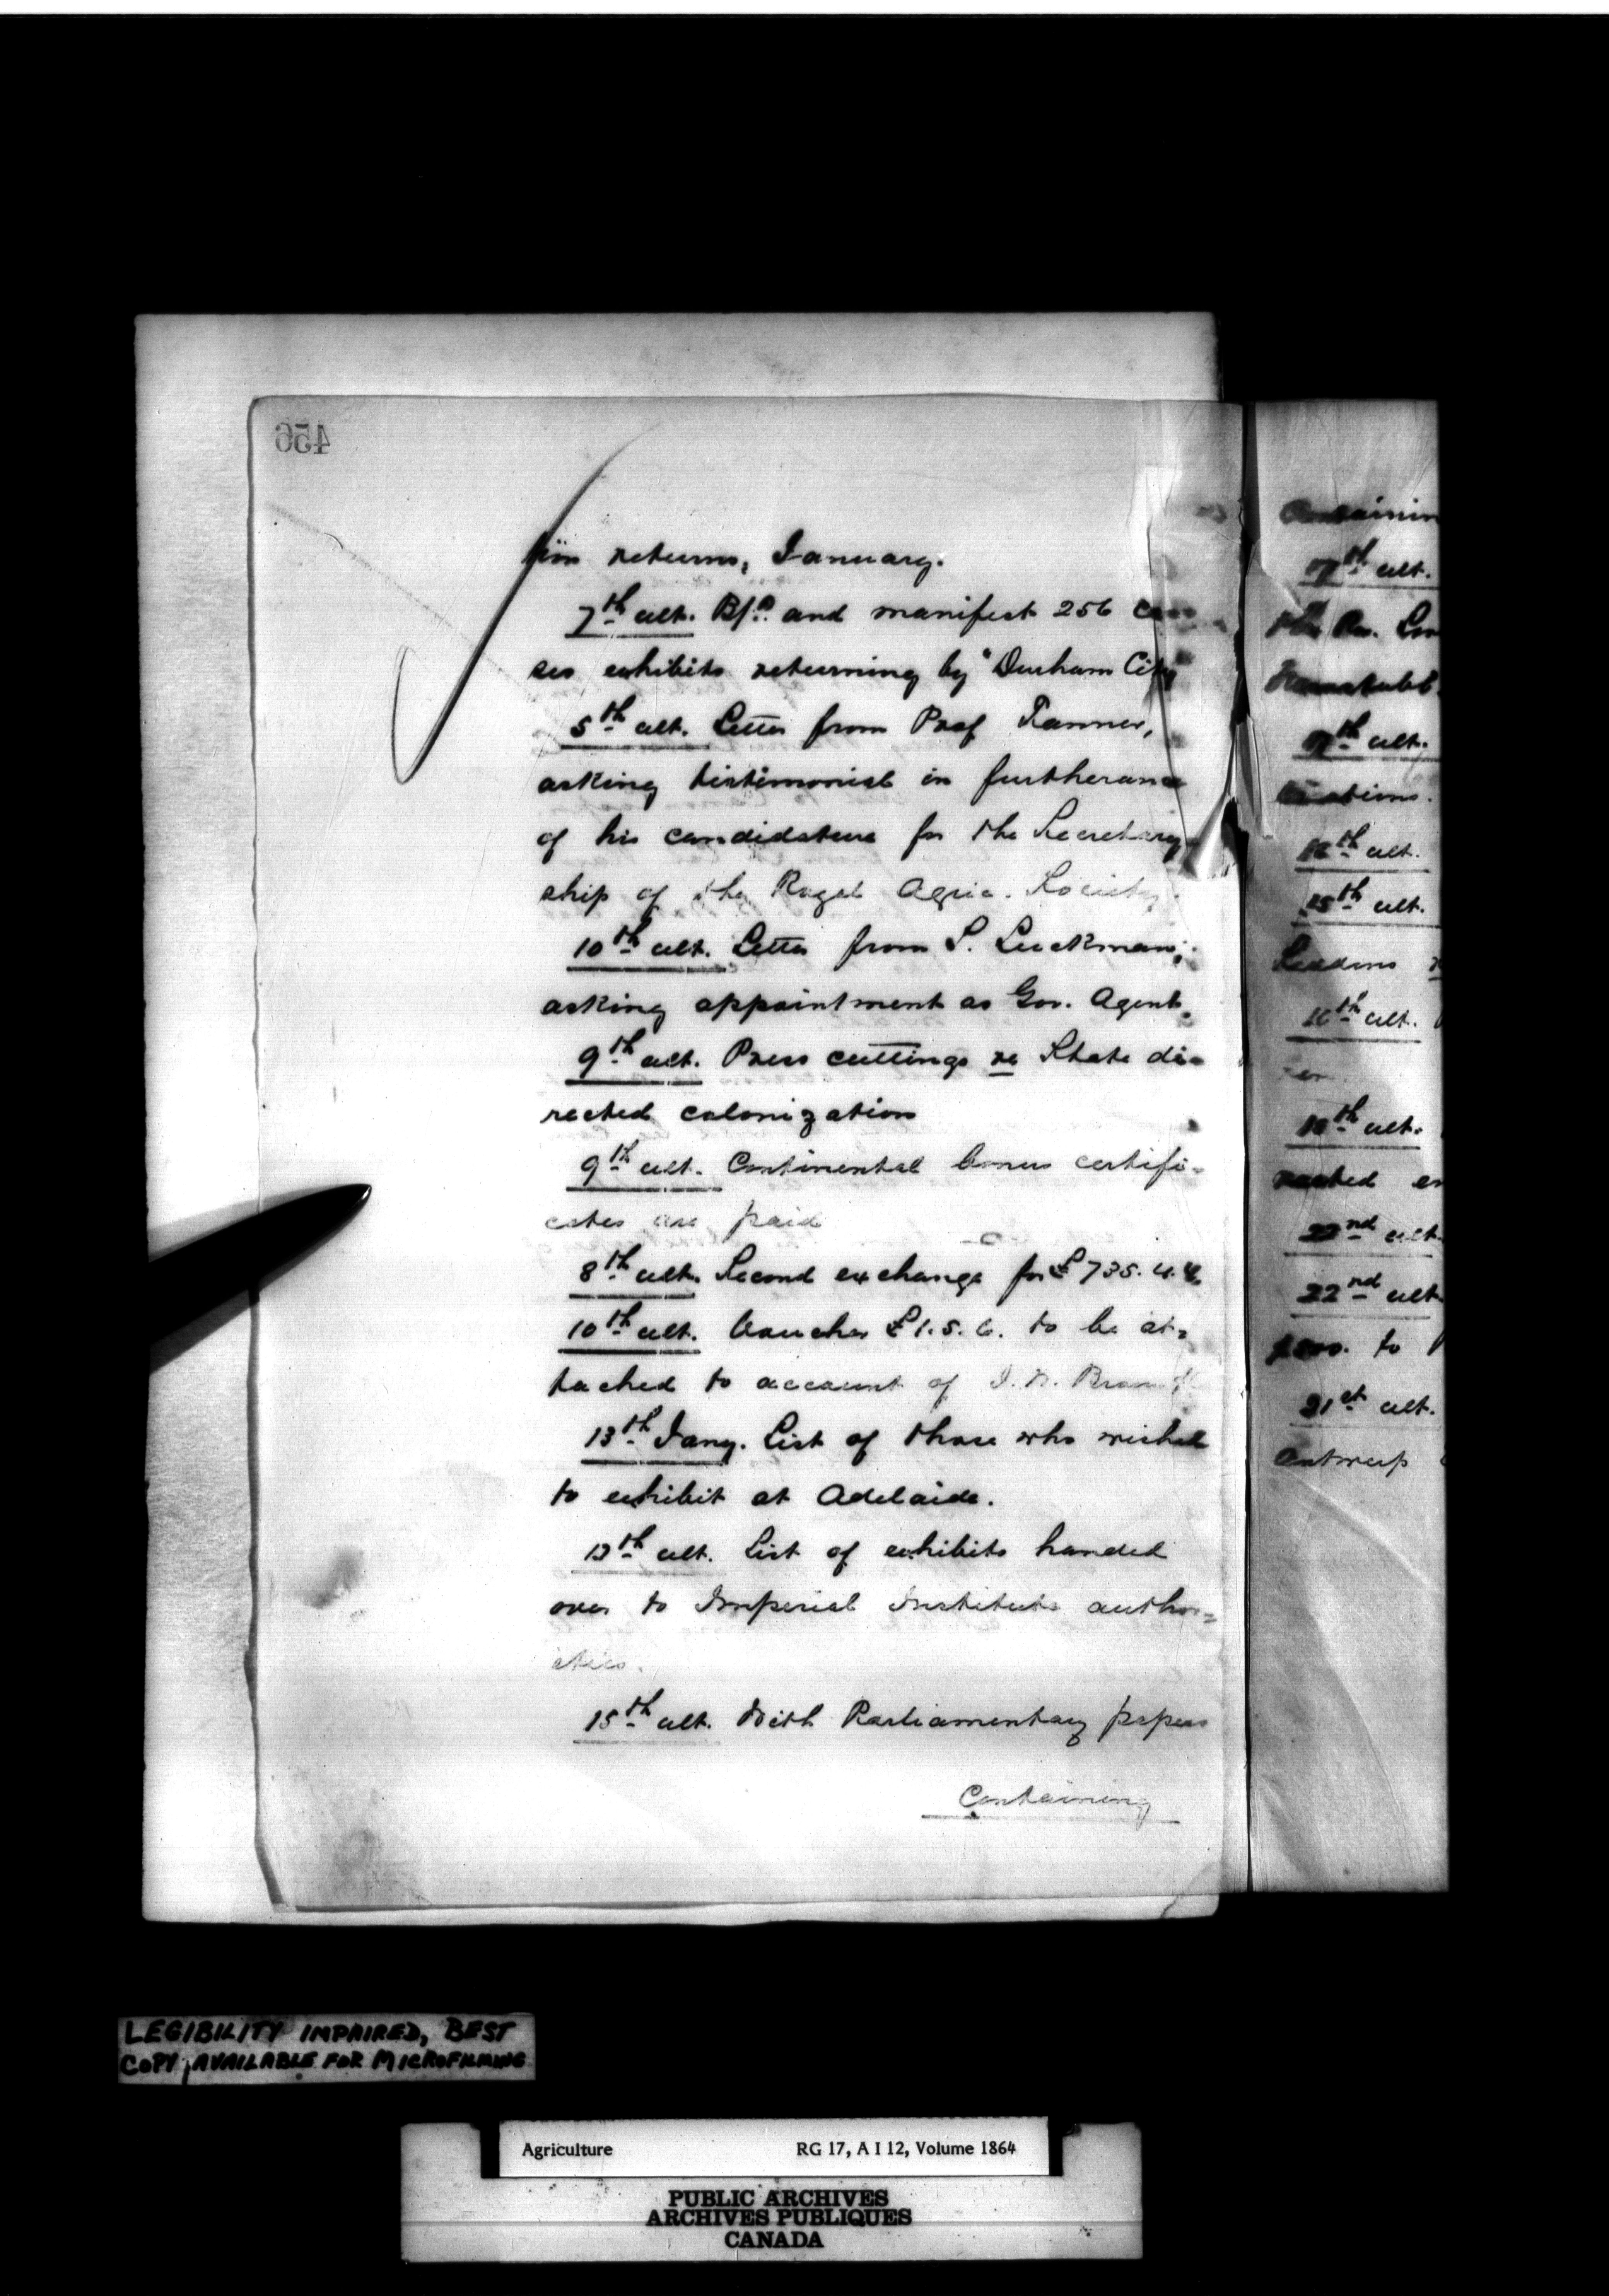 456
tion returns, January.
7th ult. B/L. and manifest 256 ca
ses exhibits returning by "Durham City
5th ult. Letter from Prof Tanner,
asking testimonial in furtherance
of his candidature for the Secretary
ship of the Royal Agric. Society.
10th ult. Letter from S. Luckman,
asking appointment as Gov. Agent.
9th ult. Press cuttings re State di=
rected colonization
9th ult. Continental bonus certifi=
cates are paid
8th ult. Second exchange for £735.4.
10th ult. Voucher £1.5.6. to be at=
tached to account of
13th Jany. List of those who wished
to exhibit at Adelaide.
13th ult. List of exhibits handed
over to Imperial Institute author=
ities.
15th ult. With Parliamentary papers
Containing
ult.
ult.
ult.
15th ult.
ult.
ult.
22nd ult.
22nd ult.
to
21st ult.
Antwerp
LEGIBILITY IMPAIRED, BEST
COPY AVAILABLE FOR MICROFILMING
Agriculture RG 17, A I 12, Volume 1864
PUBLIC ARCHIVES
ARCHIVES PUBLIQUES
CANADA